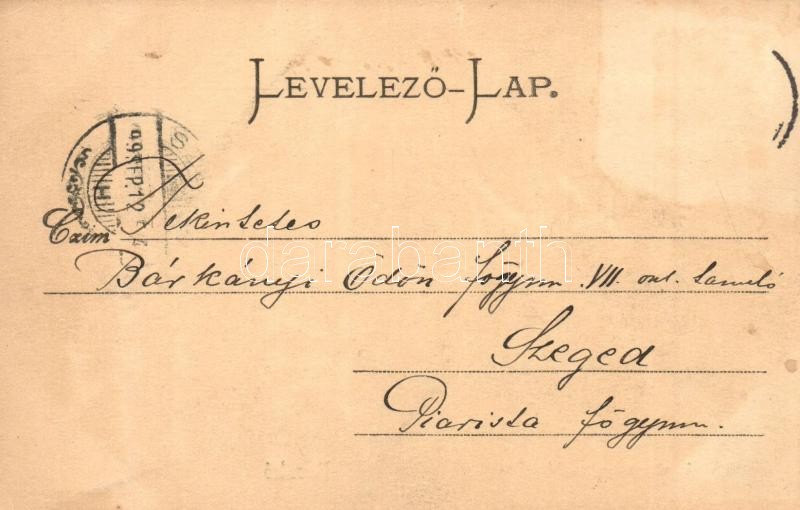 LEVELEZŐ-LAP.
Czím Tekintetes
Bárkányi Ödön főgymn. VII. oszt. tanuló
Szeged
Piarista főgymn.
darabanth.com